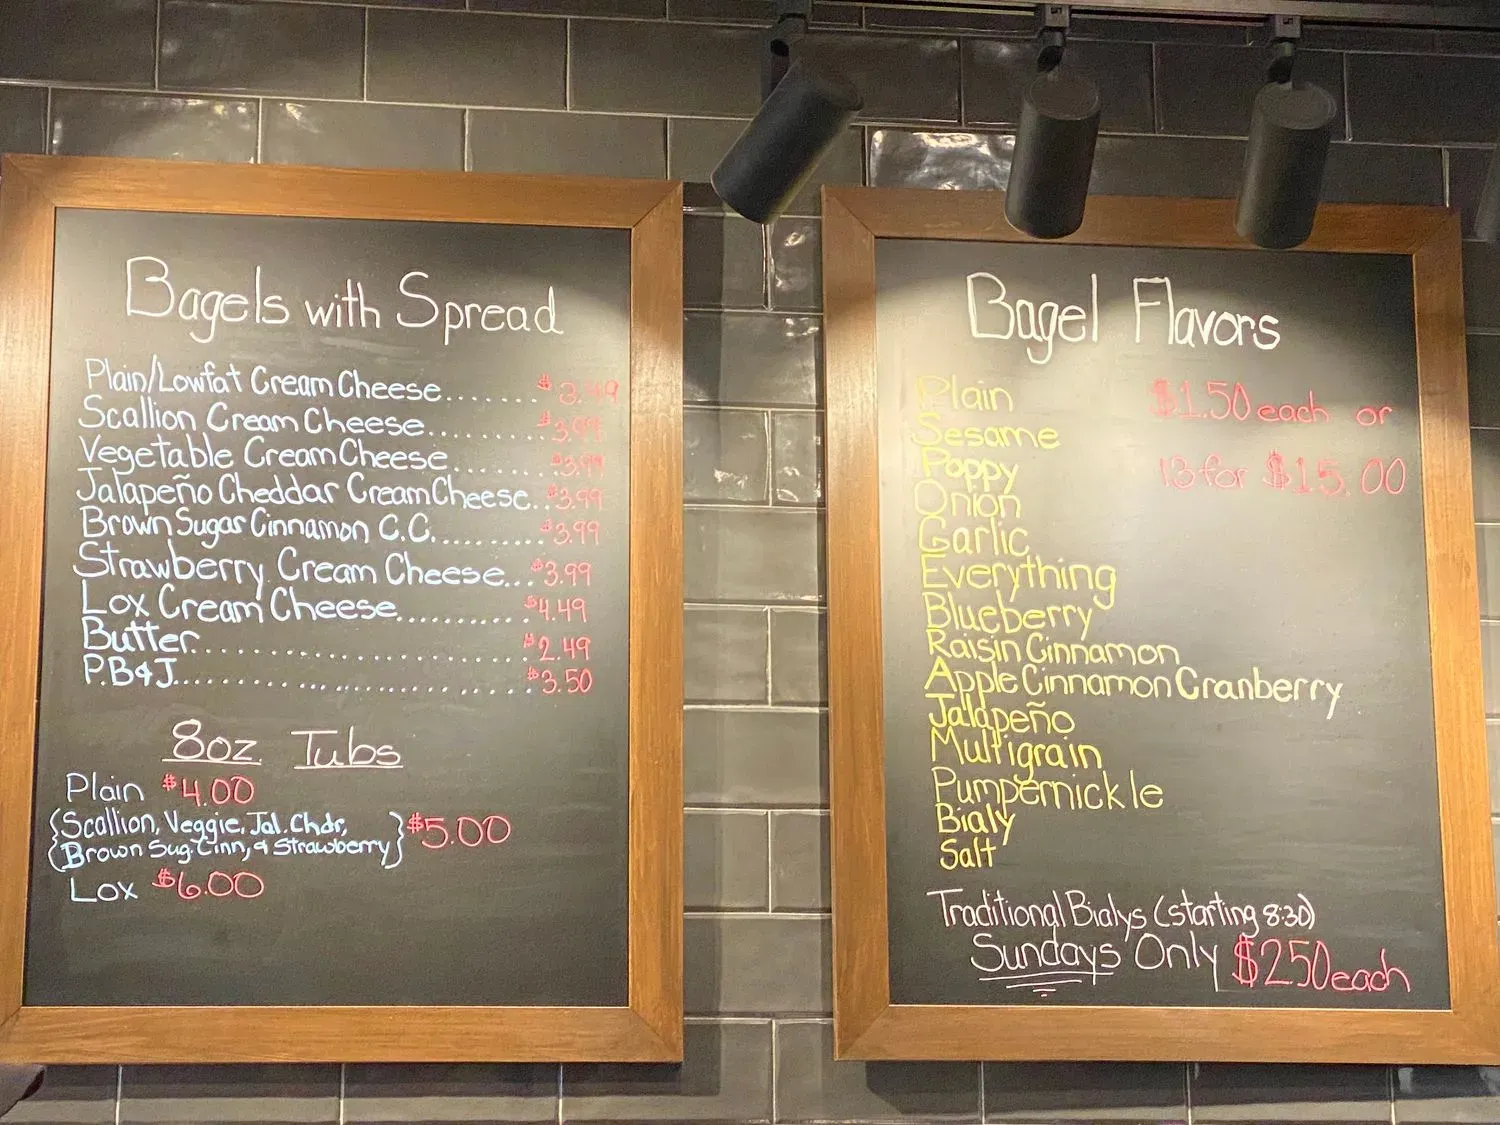 Bagels with Spread
Plain/Lowfat Cream Cheese........$3.49
Scallion Cream Cheese..........$3.99
Vegetable Cream Cheese........$3.99
Jalapeño Cheddar Cream Cheese..$3.99
Brown Sugar Cinnamon C.C..........$3.99
Strawberry Cream Cheese...$3.99
Lox Cream Cheese............$4.49
Butter..............................$2.49
P.B&J................................$3.50
8oz Tubs
Plain $4.00
{Scallion, Veggie, Jal. Chdr,
{Brown Sug. Cinn, & Strawberry} $5.00
Lox $6.00
Bagel Flavors
Plain $1.50 each or
Sesame
Poppy 13 for $15.00
Onion
Garlic
Everything
Blueberry
Raisin Cinnamon
Apple Cinnamon Cranberry
Jalapeño
Multigrain
Pumpernickle
Bialy
Salt
Traditional Bialys (starting 8:30)
Sundays Only $2.50 each